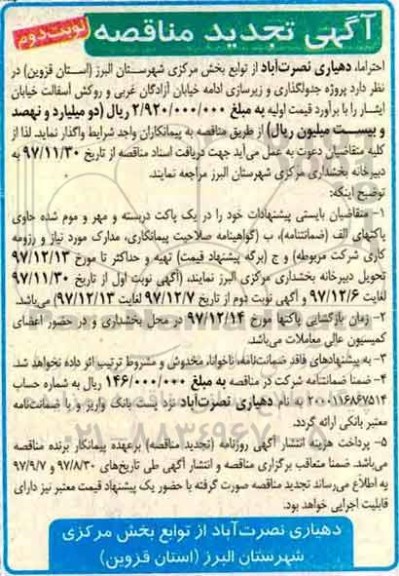 آگهی تجدید مناقصه
نوبت دوم
احتراما، دهیاری نصرت‌آباد از توابع بخش مرکزی شهرستان البرز (استان قزوین) در
نظر دارد پروژه جدولگذاری و زیرسازی ادامه خیابان آزادگان غربی و روکش آسفالت خیابان
ایثار را با برآورد قیمت اولیه به مبلغ ۲/۹۲۰/۰۰۰/۰۰۰ ریال (دو میلیارد و نهصد
و بیست میلیون ریال) از طریق مناقصه به پیمانکاران واجد شرایط واگذار نماید. لذا از
کلیه متقاضیان دعوت به عمل می‌آید جهت دریافت اسناد مناقصه از تاریخ ۹۷/۱۱/۳۰ به
دبیرخانه بخشداری مرکزی شهرستان البرز مراجعه نمایند.
توضیح اینکه:
۱- متقاضیان بایستی پیشنهادات خود را در یک پاکت دربسته و مهر و موم شده حاوی
پاکتهای الف (ضمانتنامه)، ب (گواهینامه صلاحیت پیمانکاری، مدارک مورد نیاز و رزومه
کاری شرکت مربوطه) و ج (برگه پیشنهاد قیمت) تهیه و حداکثر تا مورخ ۹۷/۱۲/۱۳
تحویل دبیرخانه بخشداری مرکزی البرز نمایند، (آگهی نوبت اول از تاریخ ۹۷/۱۱/۳۰
لغایت ۹۷/۱۲/۶ و آگهی نوبت دوم از تاریخ ۹۷/۱۲/۷ لغایت ۹۷/۱۲/۱۳) می‌باشد.
۲- زمان بازگشایی پاکتها مورخ ۹۷/۱۲/۱۴ در محل بخشداری و در حضور اعضای
کمیسیون عالی معاملات می‌باشد.
۳- به پیشنهادهای فاقد ضمانت‌نامه، ناخوانا، مخدوش و مشروط ترتیب اثر داده نخواهد شد.
۴- ضمنا ضمانتنامه شرکت در مناقصه به مبلغ ۱۴۶/۰۰۰/۰۰۰ ریال به شماره حساب
۲۰۰۰۱۱۶۸۶۷۵۱۴ به نام دهیاری نصرت‌آباد نزد پست بانک واریز و یا ضمانت‌نامه
معتبر بانکی ارائه گردد.
۵- پرداخت هزینه انتشار آگهی روزنامه (تجدید مناقصه) برعهده پیمانکار برنده مناقصه
می‌باشد. ضمنا متعاقب برگزاری مناقصه و انتشار آگهی طی تاریخ‌های ۹۷/۸/۳۰ و ۹۷/۹/۷
به اطلاع می‌رساند تجدید مناقصه صورت گرفته با حضور یک پیشنهاد قیمت معتبر نیز دارای
قابلیت اجرایی خواهد بود.
دهیاری نصرت‌آباد از توابع بخش مرکزی
شهرستان البرز (استان قزوین)